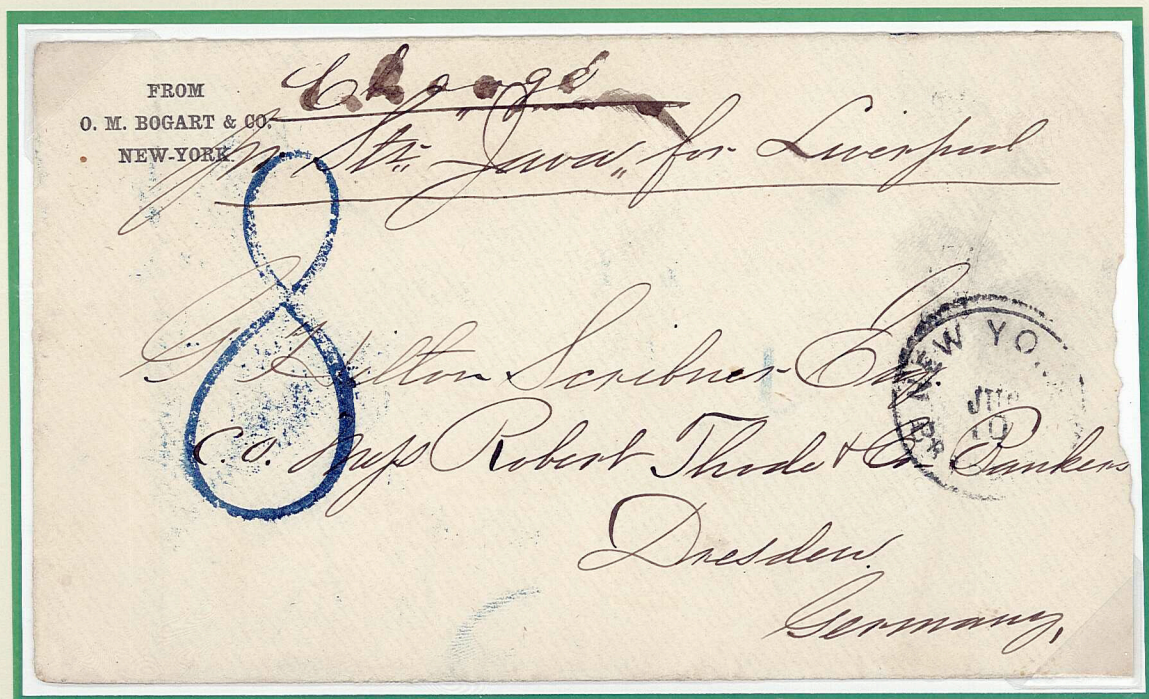 FROM
O. M. BOGART & CO.
NEW-YORK.
Charge
pr Str. "Java" for Liverpool
8
G. Hilton Scribner Esq.
c.o. Mess Robert Thode & Co Bankers
Dresden.
Germany,
NEW YO
10